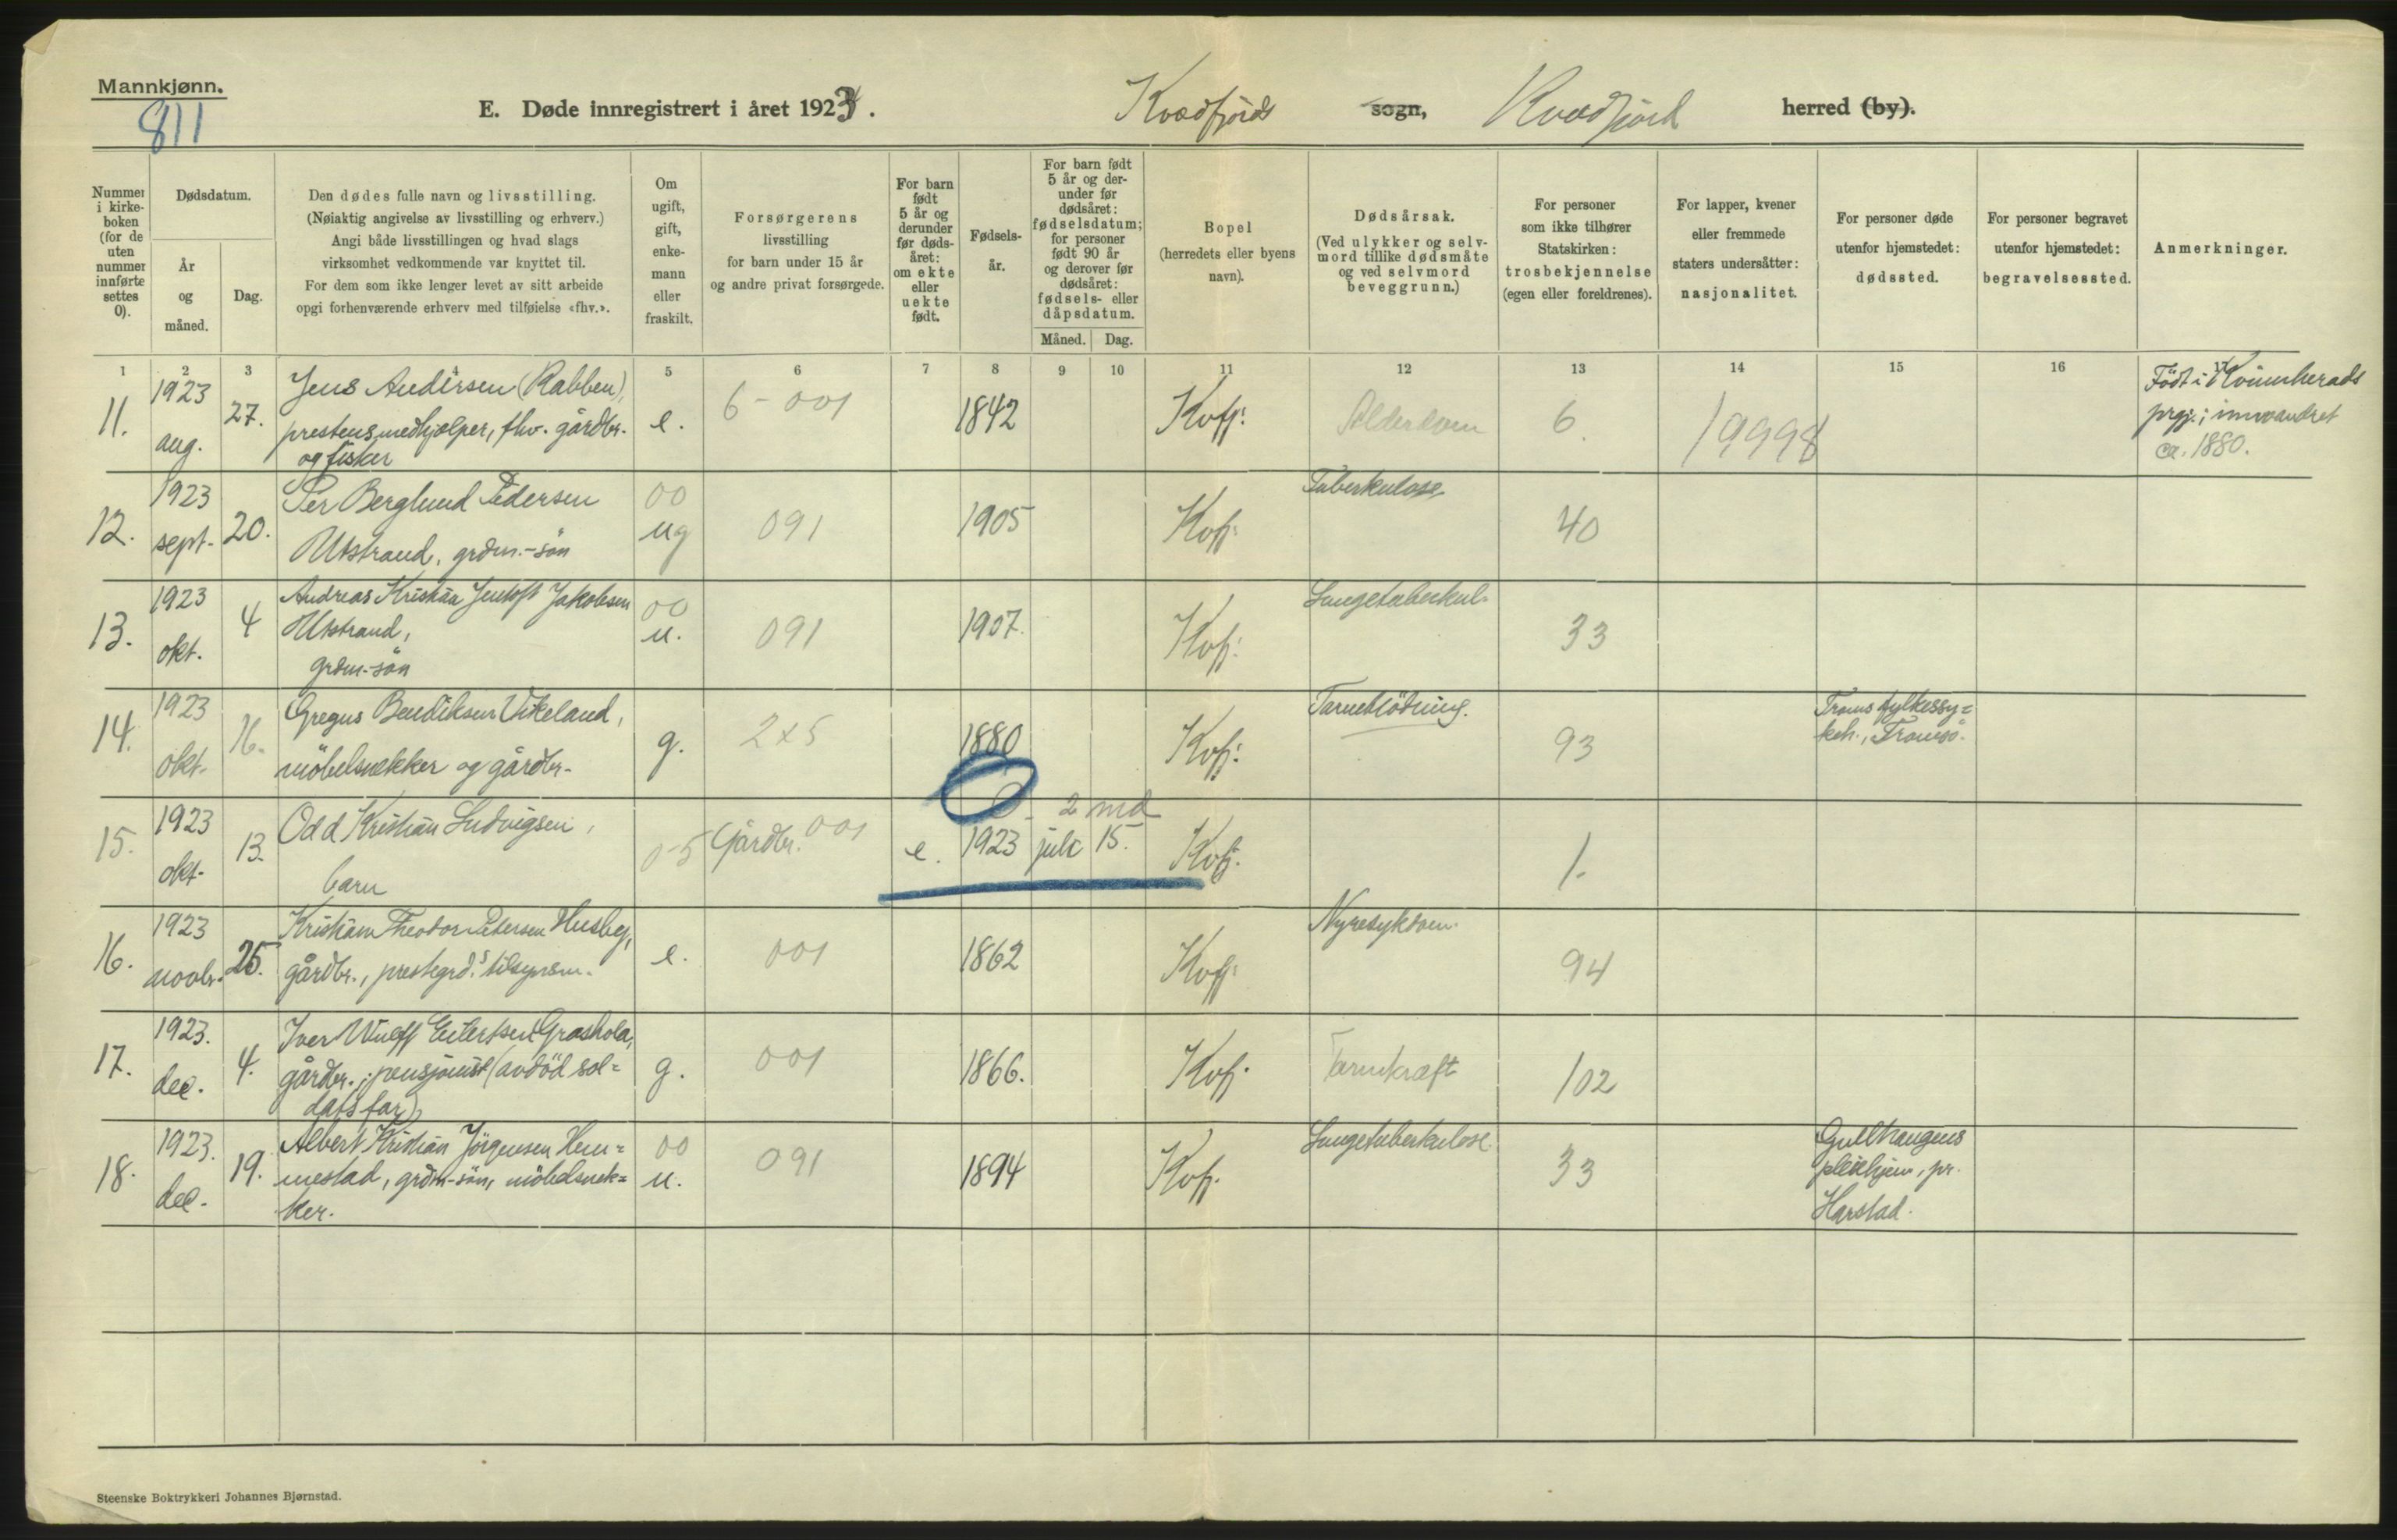 Mannkjønn.
811
E. Døde innregistrert i året 1923.
Kvædfjords sogn, Kvædfjord herred (by).
Nummer i kirkeboken (for de uten nummer innførte settes 0).
Dødsdatum.
År og måned.
Dag.
Den dødes fulle navn og livsstilling.
(Nøiaktig angivelse av livsstilling og erhverv.)
Angi både livsstillingen og hvad slags
virksomhet vedkommende var knyttet til.
For dem som ikke lenger levet av sitt arbeide
opgi forhenværende erhverv med tilføielse «fhv.».
Om ugift, gift, enkemann eller fraskilt.
Forsørgerens
livsstilling
for barn under 15 år
og andre privat forsørgede.
For barn født 5 år og derunder før dødsåret: om ekte eller uekte født.
Fødselsår.
For barn født 5 år og derunder før dødsåret: fødselsdatum; for personer født 90 år og derover før dødsåret: fødsels- eller dåpsdatum.
Måned. Dag.
Bopel
(herredets eller byens
navn).
Dødsårsak.
(Ved ulykker og selvmord tillike dødsmåte og ved selvmord beveggrunn.)
For personer
som ikke tilhører
Statskirken:
trosbekjennelse
(egen eller foreldrenes).
For lapper, kvener
eller fremmede
staters undersåtter:
nasjonalitet.
For personer døde
utenfor hjemstedet:
dødssted.
For personer begravet
utenfor hjemstedet:
begravelsessted.
Anmerkninger.
1 2 3 4 5 6 7 8 9 10 11 12 13 14 15 16 17
11. 1923 aug. 27. Jens Andersen (Rabben),
prestens medhjelper, fhv. gårdbr.
og fisker
e. 6-001 1842 Kvfj. Alderdom 6. 19998
Født i Kvinnherads
prgj.; innvandret
ca. 1880.
12. 1923 sept. 20. Per Berglund Pedersen
Utstrand, grdm.-søn
00 ug 091 1905 Kvfj. Tuberkulose 40
13. 1923 okt. 4 Andreas Kristian Jentoft Jakobsen
Utstrand,
grdm-søn
00 u. 091 1907. Kvfj. Lungetuberkul. 33
14. 1923 okt. 16. Gregus Bendiksen Vikeland,
möbelsnekker og gårdbr.
g. 2x5 1880 Kvfj. Tarmblödning. 93
Troms fylkessy=
keh., Tromsö.
15. 1923 okt. 13. Odd Kristian Ludvigsen,
barn
05 Gårdbr. 001 e. 0 2 md 1923 juli 15. Kvfj. 1.
16. 1923 novbr. 25. Kristian Theodor Petersen Husby,
gårdbr., prestegrd.s tilsynsm.
e. 001 1862 Kvfj. Nyresykdom. 94
17. 1923. dec. 4. Iver Wulff Eilertsen Grashola,
gårdbr., pensjonist (avdöd sol=
dats far)
g. 001 1866. Kvfj. Tarmkræft 102
18. 1923. dec. 19. Albert Kristian Jörgensen Hem=
mestad, grdm-søn, möbelsnek=
ker.
00 u. 091 1894 Kvfj. Lungetuberkulose. 33
Gullhaugens
pleiehjem, pr.
Harstad.
Steenske Boktrykkeri Johannes Bjørnstad.